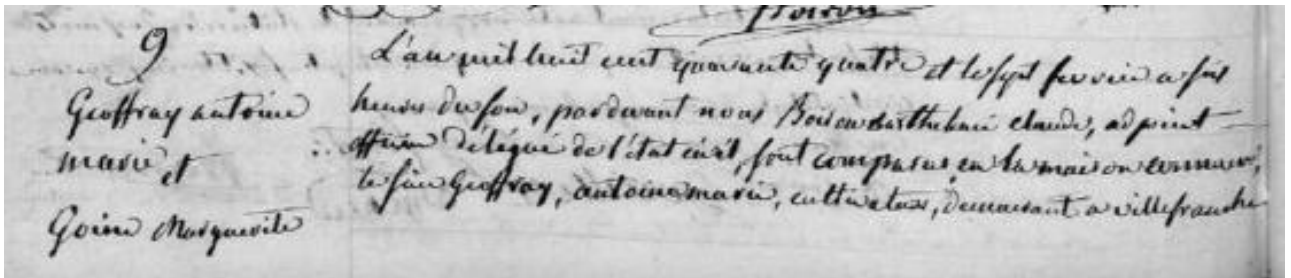 9
Geoffray antoine
marie et
Goiru Marguerite
L'an mil huit cent quarante quatre et le sept fevrier a six
heures du soir, pardevant nous Boiron Barthelmi claude, adjoint
officier délégué de l'état civil, sont comparus en la maison commune,
le sieur Geoffray, antoine marie, cultivateur, demeurant a villefranche